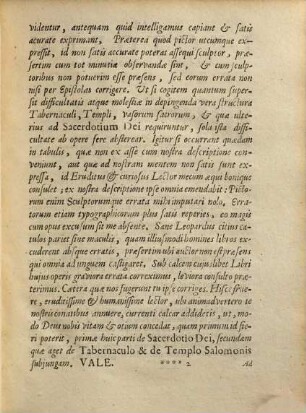 videntur, antequam quid intelligamus capiant & satis
accurate exprimant, Præterea quod pictor utcumque ex-
pressit, id non satis accurate poterat assequi sculptor, præ-
sertim cum tot minutiæ observandæ sint, & cum sculp-
toribus non potuerim esse præsens, sed eorum errata non
nisi per Epistolas corrigere. Ut si cogitem quantum super-
sit difficultatis atque molestiæ in depingenda vera structura
Tabernaculi, Templi, vasorum sacrorum, & quæ ulte-
rius ad Sacerdotium Dei requiruntur, sola ista diffi-
cultate ab opere fere absterrear. Igitur si occurrant quædam
in tabulis, quæ non ex asse cum nostra descriptione con-
veniunt, aut quæ ad nostram mentem non satis sunt ex-
pressa, id Eruditus & curiosus Lector mecum æqui bonique
consulet; ex nostra descriptione ipse omnia emendabit: Picto-
rum enim Sculptorumque errata mihi imputari nolo. Er-
ratorum etiam typographicorum plus satis reperies, eo magis
cum opus excusum sit me absente. Sane Leopardus citius ca-
rulos pariet sine maculis, quam illius modi homines libros ex-
cuderent absque erratis, præsertim ubi auctor non est præsens
qui omnia ad unguem castigaret. Sub calcem cujuslibet Libri
hujus operis graviora errata correximus, leviora consulto præ-
terimus. Cætera quæ nos fugerunt tu ipse corriges. Hisce fruc-
re, eruditissime & humanissime lector, ubi animadvertero te
nostris conatibus annuere, currenti calcar addideris, ut, mo-
do Deus nobis vitam & otium concedat, quam primum id fi-
eri poterit, primæ huic parti de Sacerdotio Dei, secundam
quæ aget de Tabernaculo & de Templo Salomonis
subjungam. VALE.
**** 2 Ad